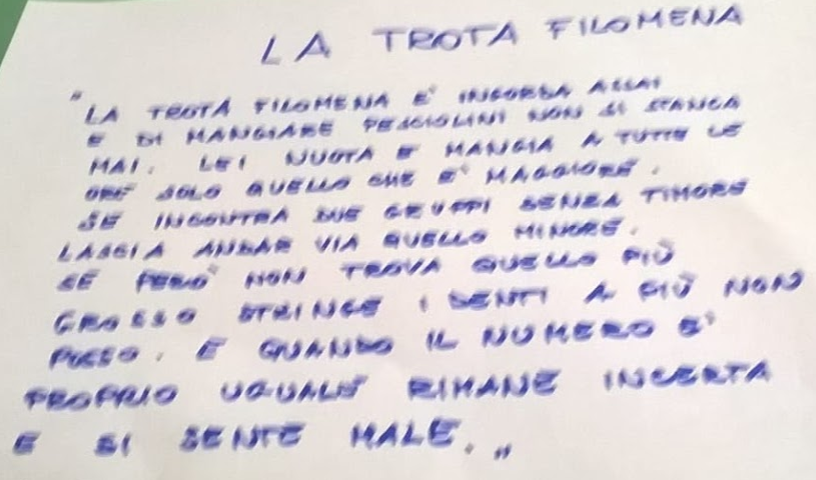 LA TROTA FILOMENA
"LA TROTA FILOMENA E' INGORDA ASSAI
E DI MANGIARE PESCIOLINI NON SI STANCA
MAI. LEI NUOTA E MANGIA A TUTTE LE
ORE SOLO QUELLO CHE E' MAGGIORE.
SE INCONTRA DUE GRUPPI SENZA TIMORE
LASCIA ANDAR VIA QUELLO MINORE.
SE PERO' NON TROVA QUELLO PIÙ
GROSSO STRINGE I DENTI A PIÙ NON
POSSO. E QUANDO IL NUMERO E'
PROPRIO UGUALE RIMANE INCERTA
E SI SENTE MALE."